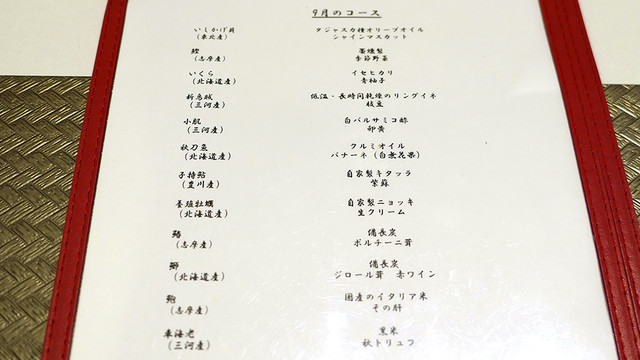 9月のコース
いしかげ貝 タジャスカ種オリーブオイル
(東北産) シャインマスカット
藁燻製
(志摩産) 季節野菜
いくら イセヒカリ
(北海道産) 青柚子
新烏賊 低温・長時間乾燥のリングイネ
(三河産) 枝豆
小肌 白バルサミコ酢
(三河産) 卵黄
秋刀魚 クルミオイル
(北海道産) バナーネ(白無花果)
子持鮎 自家製キタッラ
(豊川産) 紫蘇
養殖牡蠣 自家製ニョッキ
(北海道産) 生クリーム
備長炭
(志摩産) ポルチーニ茸
備長炭
(北海道産) ジロール茸 赤ワイン
鮑 国産のイタリア米
(志摩産) その肝
車海老 黒米
(三河産) 秋トリュフ